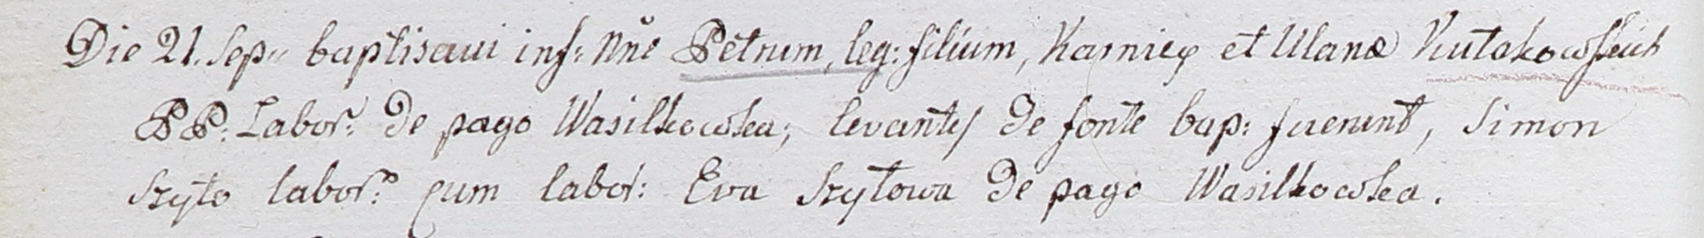 Die 21. Sep: baptisavi inf: nñe Petrum, leg: filium, Karniey et Ulanæ Kutakowskich
PP: Labor: de pago Wasilkowka; levantes de fonte bap: fuerunt, Simon
Szyto labor: cum labor: Eva Szytowa de pago Wasilkowka.